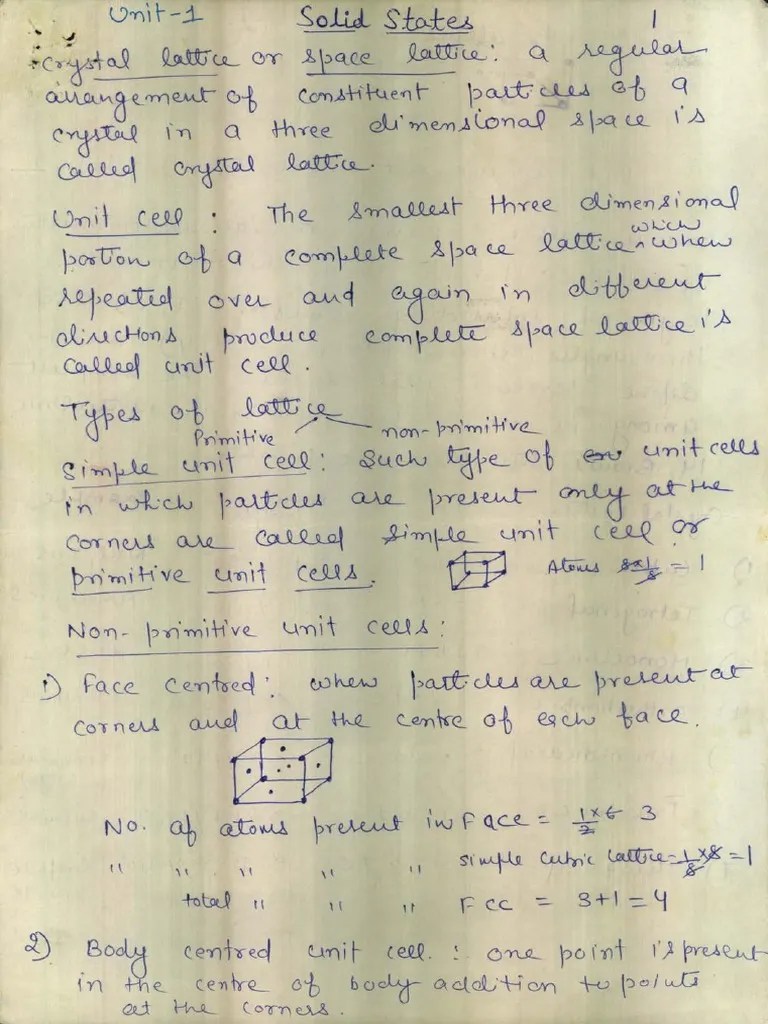 Unit-1 Solid States 1
Crystal lattice or space lattice: a regular
arrangement of constituent particles of a
crystal in a three dimensional space is
called crystal lattice.
Unit cell : The smallest three dimensional
portion of a complete space lattice which when
repeated over and again in different
directions produce complete space lattice is
called unit cell.
Types of lattice
Primitive non-primitive
Simple unit cell: Such type of unit cells
in which particles are present only at the
corners are called simple unit cell or
primitive unit cells. Atoms 8×1/8 = 1
Non-primitive unit cells:
1) Face centred: when particles are present at
corners and at the centre of each face.
No. of atoms present in Face = 1/2 × 6 3
" " " " " simple cubic lattice = 1/8 × 8 = 1
total " " " Fcc = 3+1 = 4
2) Body centred unit cell. : one point is present
in the centre of body addition to points
at the corners.